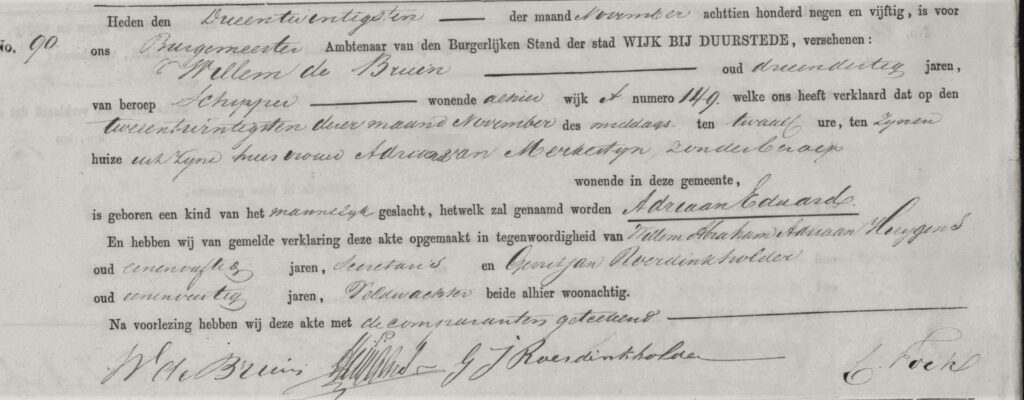 Heden den Drieentwintigsten der maand November achttien honderd negen en vijftig, is voor
No. 90. ons Burgemeester Ambtenaar van den Burgerlijken Stand der stad WIJK BIJ DUURSTEDE, verschenen:
Willem de Bruin oud drieendertig jaren,
van beroep Schipper wonende alhier wijk A numero 149. welke ons heeft verklaard dat op den
tweeentwintigsten dezer maand November des middags ten twaalf ure, ten zynen
huize uit zyne huisvrouw Adriana van Merkestyn, zonder beroep
wonende in deze gemeente,
is geboren een kind van het mannelyk geslacht, hetwelk zal genaamd worden Adriaan Eduard.
En hebben wij van gemelde verklaring deze akte opgemaakt in tegenwoordigheid van Willem Abraham Adriaan Huygens
oud eenenvyftig jaren, Secretaris en Gerritjan Roerdinkholder
oud eenenveertig jaren, Veldwachter beide alhier woonachtig.
Na voorlezing hebben wij deze akte met de comparanten geteekend
W de Bruin G J Roerdinkholder E. Fock